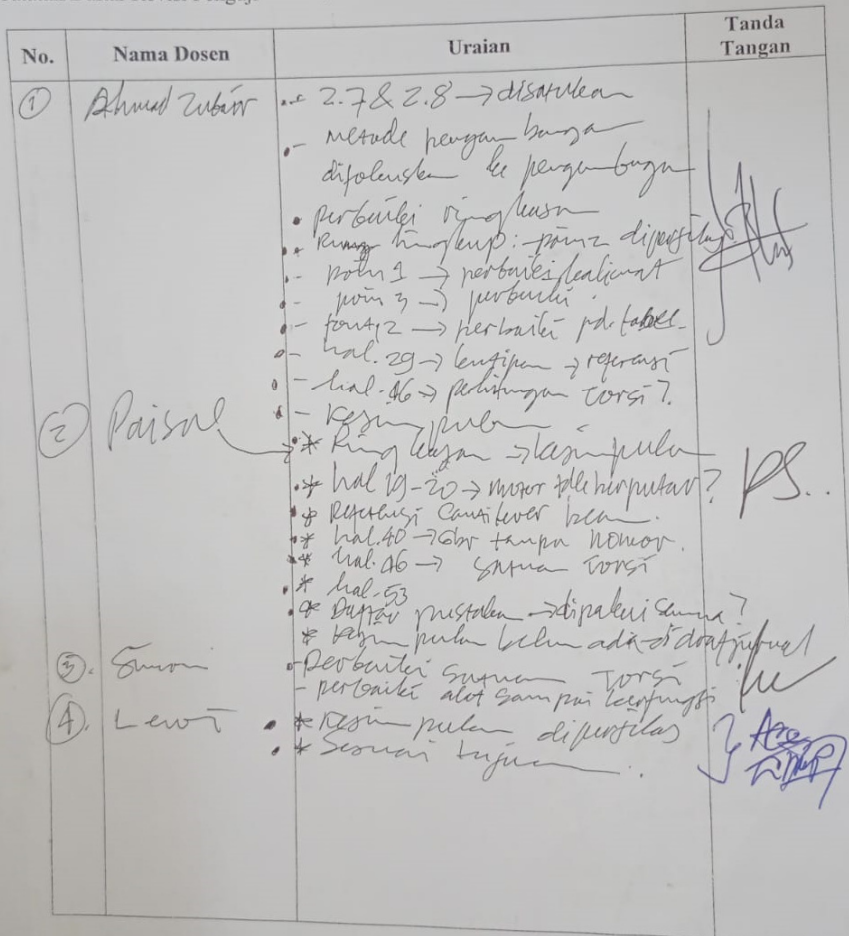 No. Nama Dosen Uraian Tanda Tangan
① Ahmad Zubair - 2.7 & 2.8 → disatukan
- Metode pengembangan
difokuskan ke pengembangan
perbaiki ringkasan
Ruang lingkup: - poin 2 diperjelas?
- poin 1 → perbaiki kalimat
- poin 3 → perbaiki
- font 12 → perbaiki pd. tabel
- hal. 29 → kutipan → referensi
- hal. 46 → perhitungan Torsi?
- Kesimpulan
② Paisal * Ringkasan → kesimpulan
* hal 19-20 → motor tdk berputar? PS..
* Referensi Cantilever beam.
* hal. 40 → Gbr tanpa nomor.
* hal. 46 → satuan Torsi
* hal. 53
* Daftar pustaka → dipakai semua?
* kesimpulan belum ada di draft jurnal
③. - Perbaiki satuan Torsi
- perbaiki alat sampai berfungsi
④. Lewi * Kesimpulan diperjelas
* Sesuai tujuan